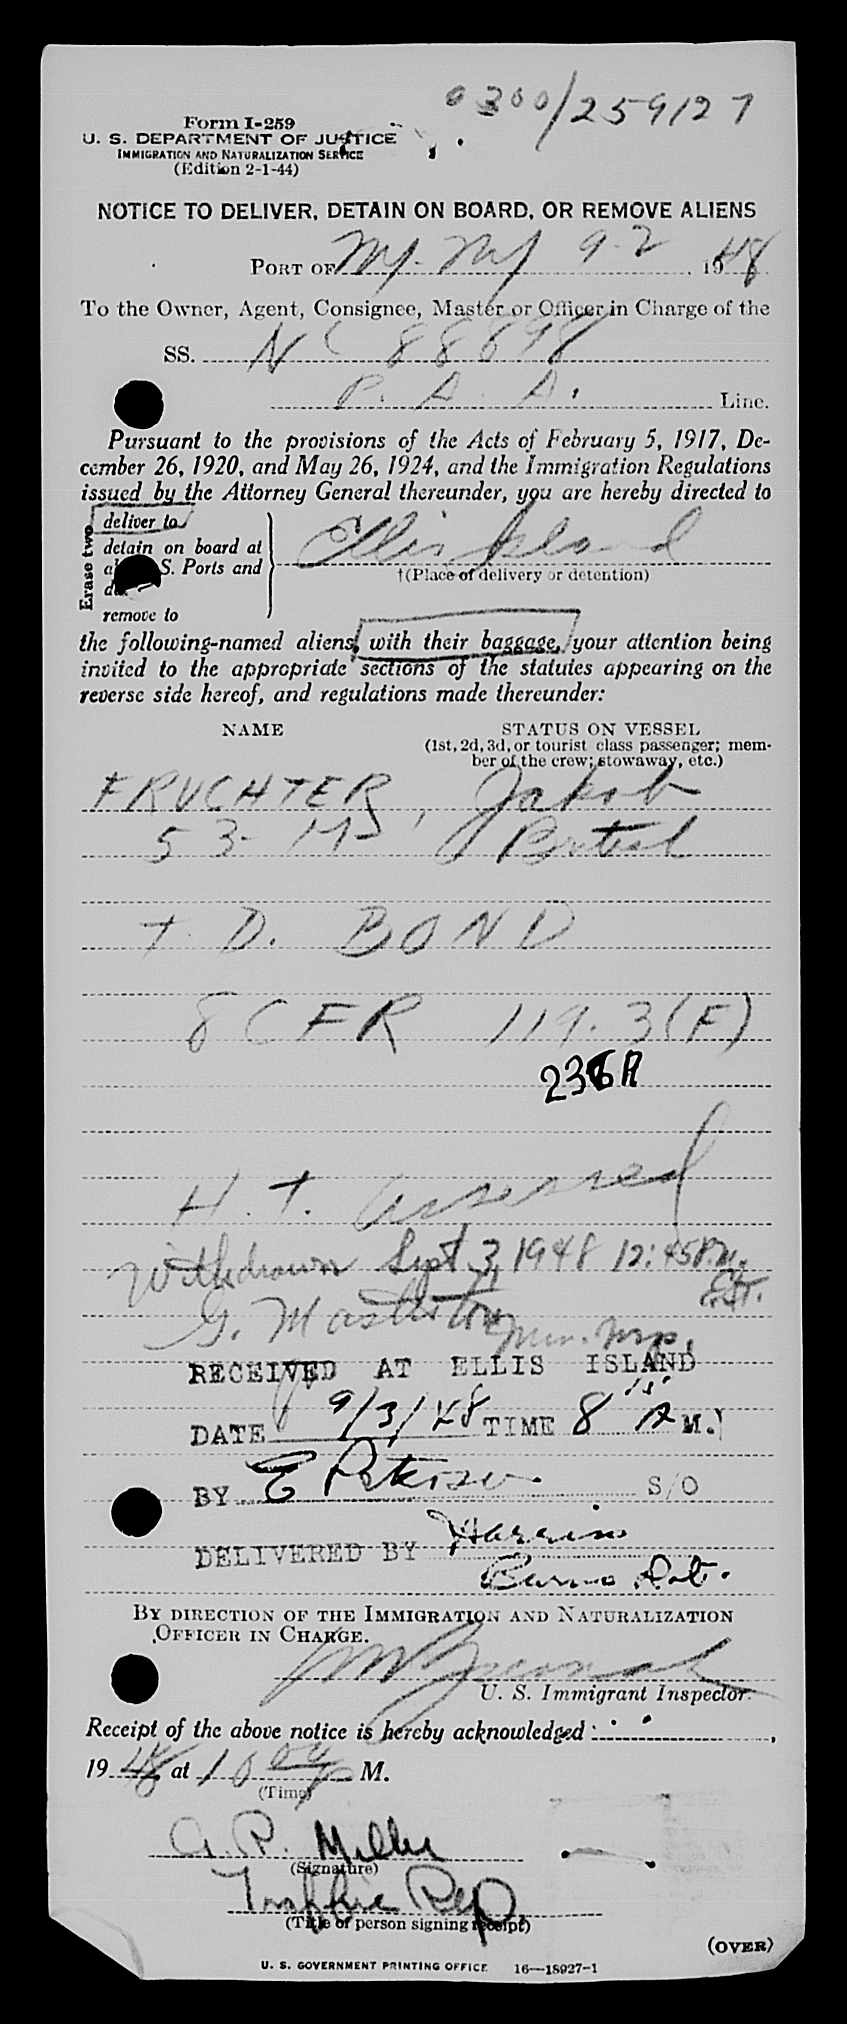 0300/259127
Form I-259
U. S. DEPARTMENT OF JUSTICE
IMMIGRATION AND NATURALIZATION SERVICE
(Edition 2-1-44)
NOTICE TO DELIVER, DETAIN ON BOARD, OR REMOVE ALIENS
PORT OF NY. NY 9-2, 1948
To the Owner, Agent, Consignee, Master or Officer in Charge of the
SS. NC 88898
P. A. A. Line.
Pursuant to the provisions of the Acts of February 5, 1917, De-
cember 26, 1920, and May 26, 1924, and the Immigration Regulations
issued by the Attorney General thereunder, you are hereby directed to
Erase two
deliver to
detain on board at
S. Ports and
remove to
Ellis Island
†(Place of delivery or detention)
the following-named aliens, with their baggage, your attention being
invited to the appropriate sections of the statutes appearing on the
reverse side hereof, and regulations made thereunder:
NAME STATUS ON VESSEL
(1st, 2d, 3d, or tourist class passenger; mem-
ber of the crew; stowaway, etc.)
FRUCHTER, Jakob
53- British
T. D. BOND
8 CFR 119.3(F)
H. T. assessed
Withdrawn Sept 3, 1948 12:45 P.M.
E.S.T.
RECEIVED AT ELLIS ISLAND
DATE 9/3/48 TIME 8 15 A M.
BY E Peterson S/O
DELIVERED BY
BY DIRECTION OF THE IMMIGRATION AND NATURALIZATION
OFFICER IN CHARGE.
U. S. Immigrant Inspector.
Receipt of the above notice is hereby acknowledged
1948 at M.
(Time)
A. R. Miller
(Signature)
Traffic Rep
(Title of person signing receipt)
(OVER)
U. S. GOVERNMENT PRINTING OFFICE 16—18927-1